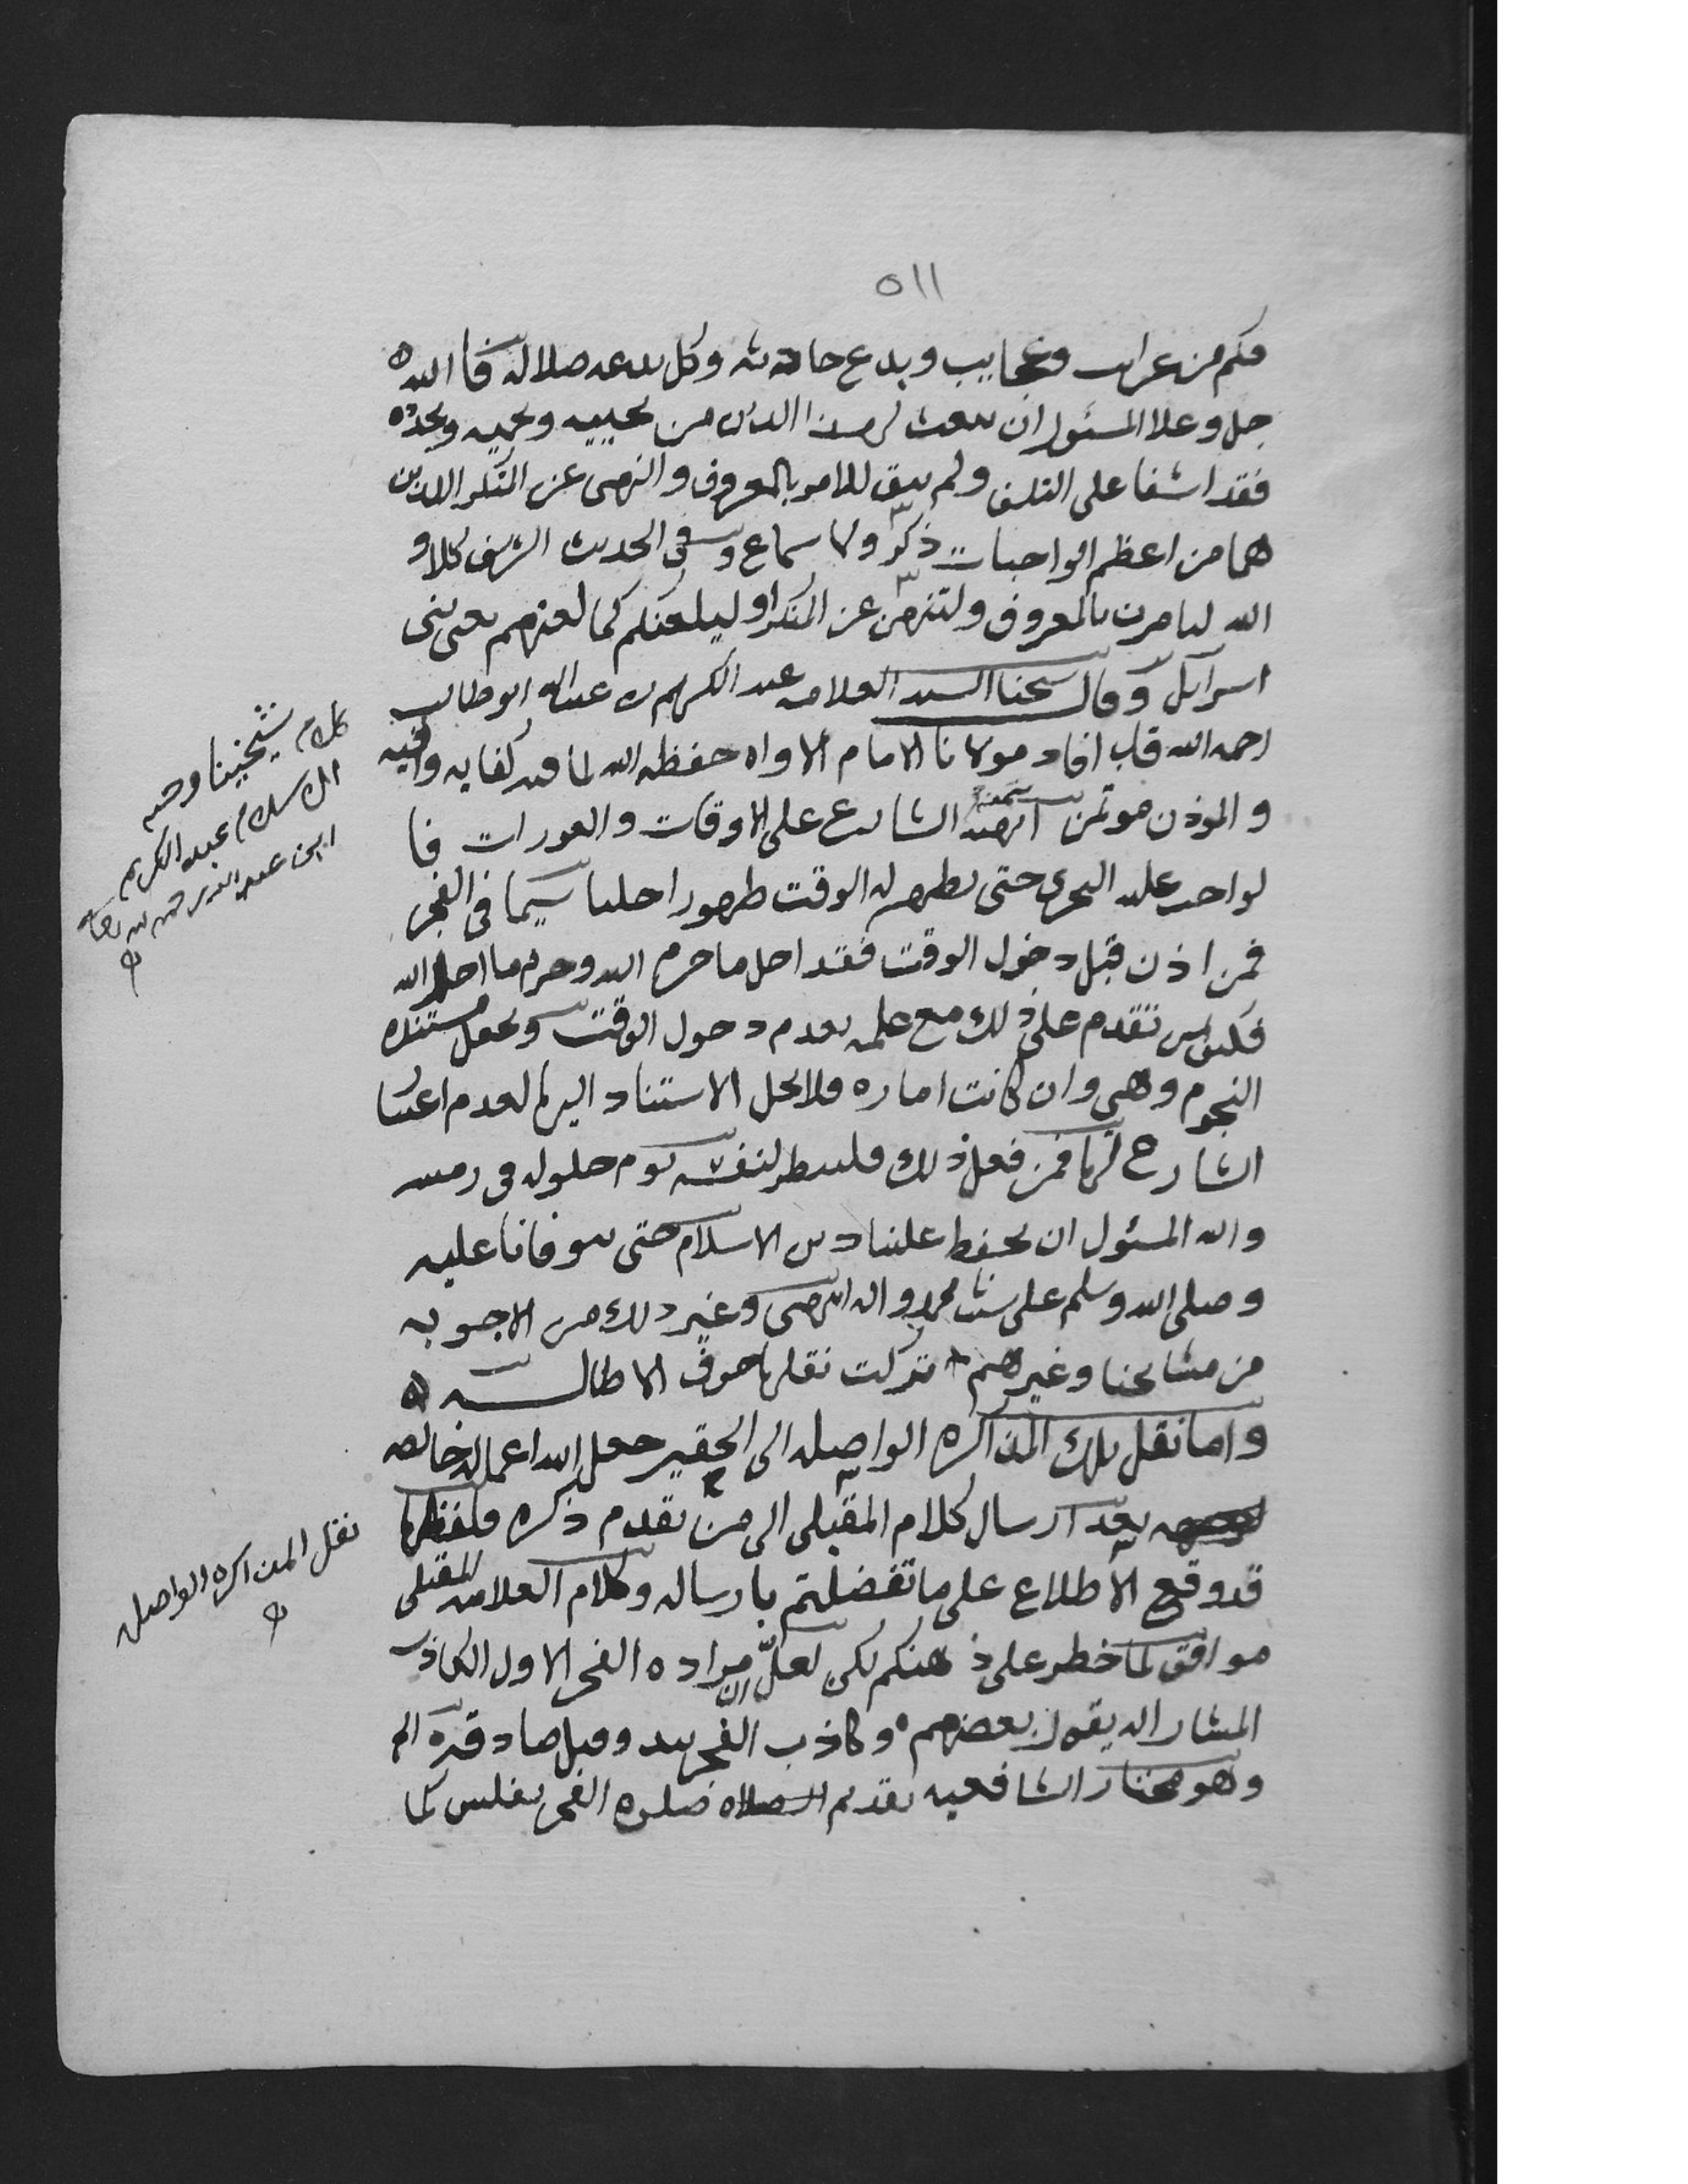 ٥١١
فكم من غرايب وعجايب وبدع حادثه وكل بدعه ضلاله فالله
جل وعلا المسئول ان يبعث لهذا الدين من يحييه ويحميه ويجدده
فقد اشفا على التلف ولم يبق للامر بالمعروف والنهى عن المنكر اللذين
هما من اعظم الواجبات ذكر ولا سماع وفى الحديث الشريف كلا و
الله لتامرن بالمعروف ولتنهن عن المنكر او ليلعنكم كما لعنهم يعنى بنى
اسرآيل وقال شيخنا السيد العلامه عبد الكريم بن عبدالله ابو طالب
رحمه الله قد افاد مولانا الامام الاواه حفظه الله لما فيه كفايه وافيه
والموذن موتمن الشارع على الاوقات والعورات فا
لواجب عليه التحرى حتى يظهر له الوقت ظهورا جليا سيما فى الفجر
فمن اذن قبل دخول الوقت فقد احل ما حرم الله وحرم ما احل الله
فكيف من تقدم على ذلك مع علمه بعدم دخول الوقت وجعل مستنده
النجوم وهى وان كانت اماره فلا يحل الاستناد اليها لعدم اعتبار
الشارع لها فمن فعل ذلك فلينظر لنفسه يوم حلوله فى رمسه
والله المسئول ان يحفظ علينا دين الاسلام حتى يتوفانا عليه
وصلى الله وسلم على سيدنا محمد واله انتهى وغير ذلك من الاجوبه
من مشايخنا وغيرهم تركت نقلها خوف الاطاله
واما نقل تلك المذاكره الواصله الى الحقير جعل الله اعماله خالصه
بعد ارسال كلام المقبلى الى من تقدم ذكره فلفظها
قد وقع الاطلاع على ما تفضلتم بارساله وكلام العلامه المقبلى
موافق لما خطر على ذهنكم لكن لعل ان مراده الفجر الاول الكاذب
المشار اليه بقول بعضهم وكاذب الفجر يبدو قبل صادقه الخ
وهو مختار الشافعيه تقديم الصلاه صلوه الفجر بغلس كما
كلام شيخنا وحيد
الاسلام عبد الكريم
ابن عبدالله رحمه الله تعالى
نقل المذاكره الواصله